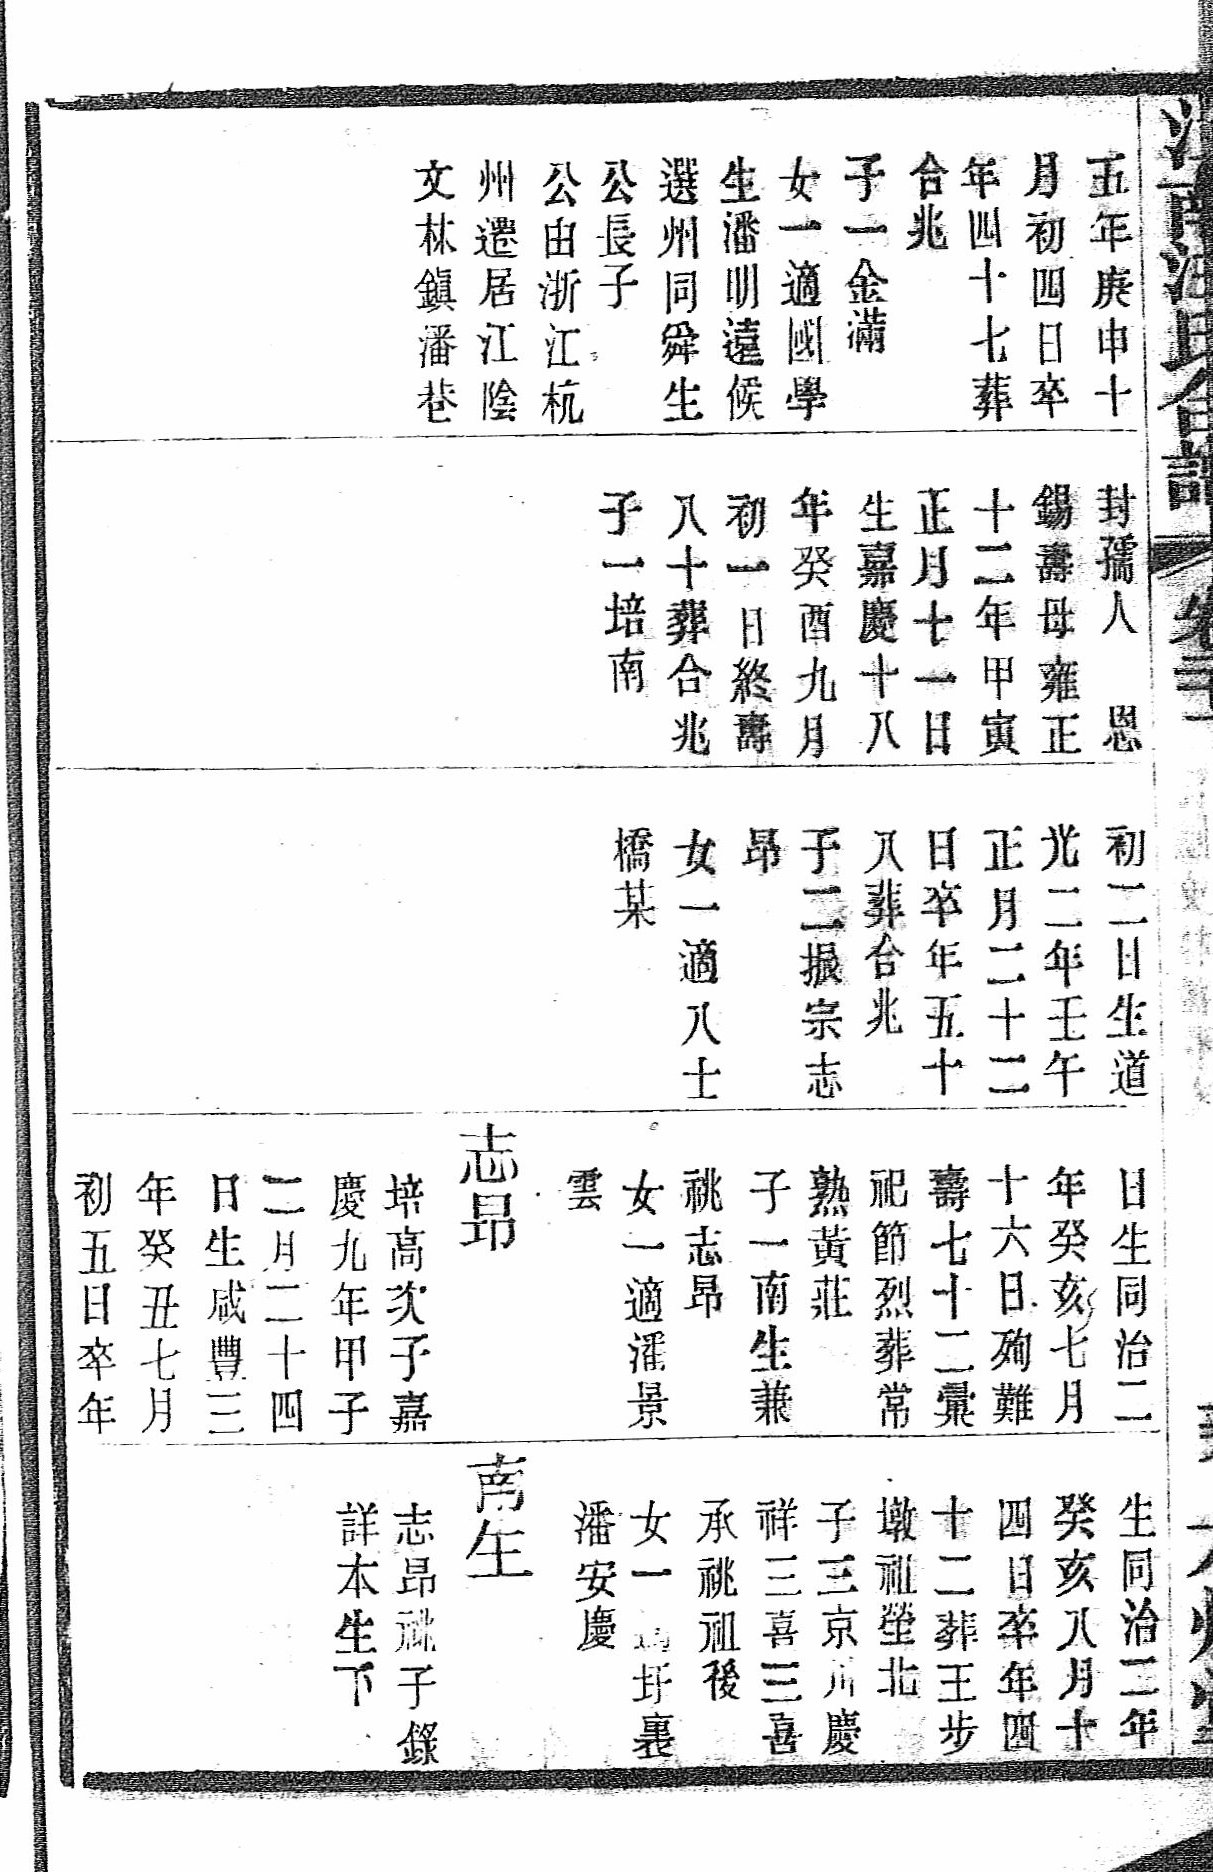 五年庚申十
月初四日卒
年四十七葬
合兆
子一金滿
女一適國學
生潘明遠候
選州同舜生
公長子
公由浙江杭
州遷居江陰
文林鎭潘巷
封孺人　恩
錫壽母雍正
十二年甲寅
正月十一日
生嘉慶十八
年癸酉九月
初一日終壽
八十葬合兆
子一培南
初二日生道
光二年壬午
正月二十二
日卒年五十
八葬合兆
子二振宗志
昂
女一適八士
橋某
日生同治二
年癸亥七月
十六日殉難
壽七十二彙
祀節烈葬常
熟黃莊
子一南生兼
祧志昂
女一適潘景
雲
志昂
培高次子嘉
慶九年甲子
二月二十四
日生咸豐三
年癸丑七月
初五日卒年
生同治二年
癸亥八月十
四日卒年四
十二葬王步
墩祖塋北
子三京川慶
祥三喜三喜
承祧祖後
女一適圩裏
潘安慶
南生
志昂祧子錄
詳本生下